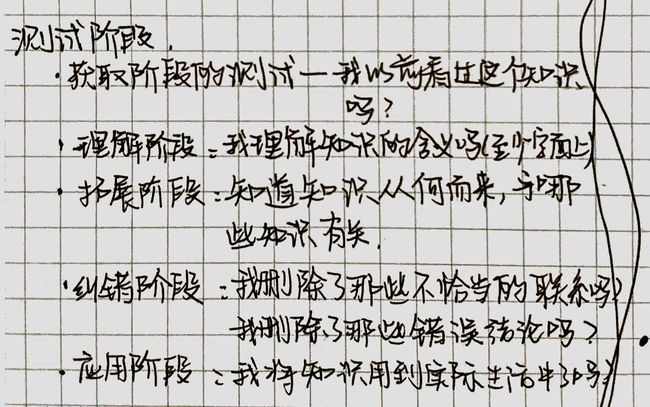 测试阶段.
· 获取阶段的测试—我以前看过这个知识
吗?
· 理解阶段:我理解知识的含义吗(至少字面上)
· 拓展阶段:知道知识从何而来,和那
些知识有关.
· 纠错阶段:我删除了那些不恰当的联系吗?
我删除了那些错误结论吗?
· 应用阶段:我将知识用到实际生活中了吗?